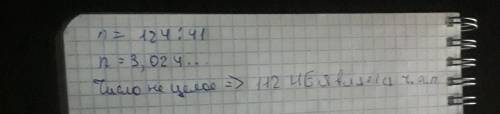 n = 124 : 41
n = 3,024...
Число не целое => 112 НЕ является ч.а.п.